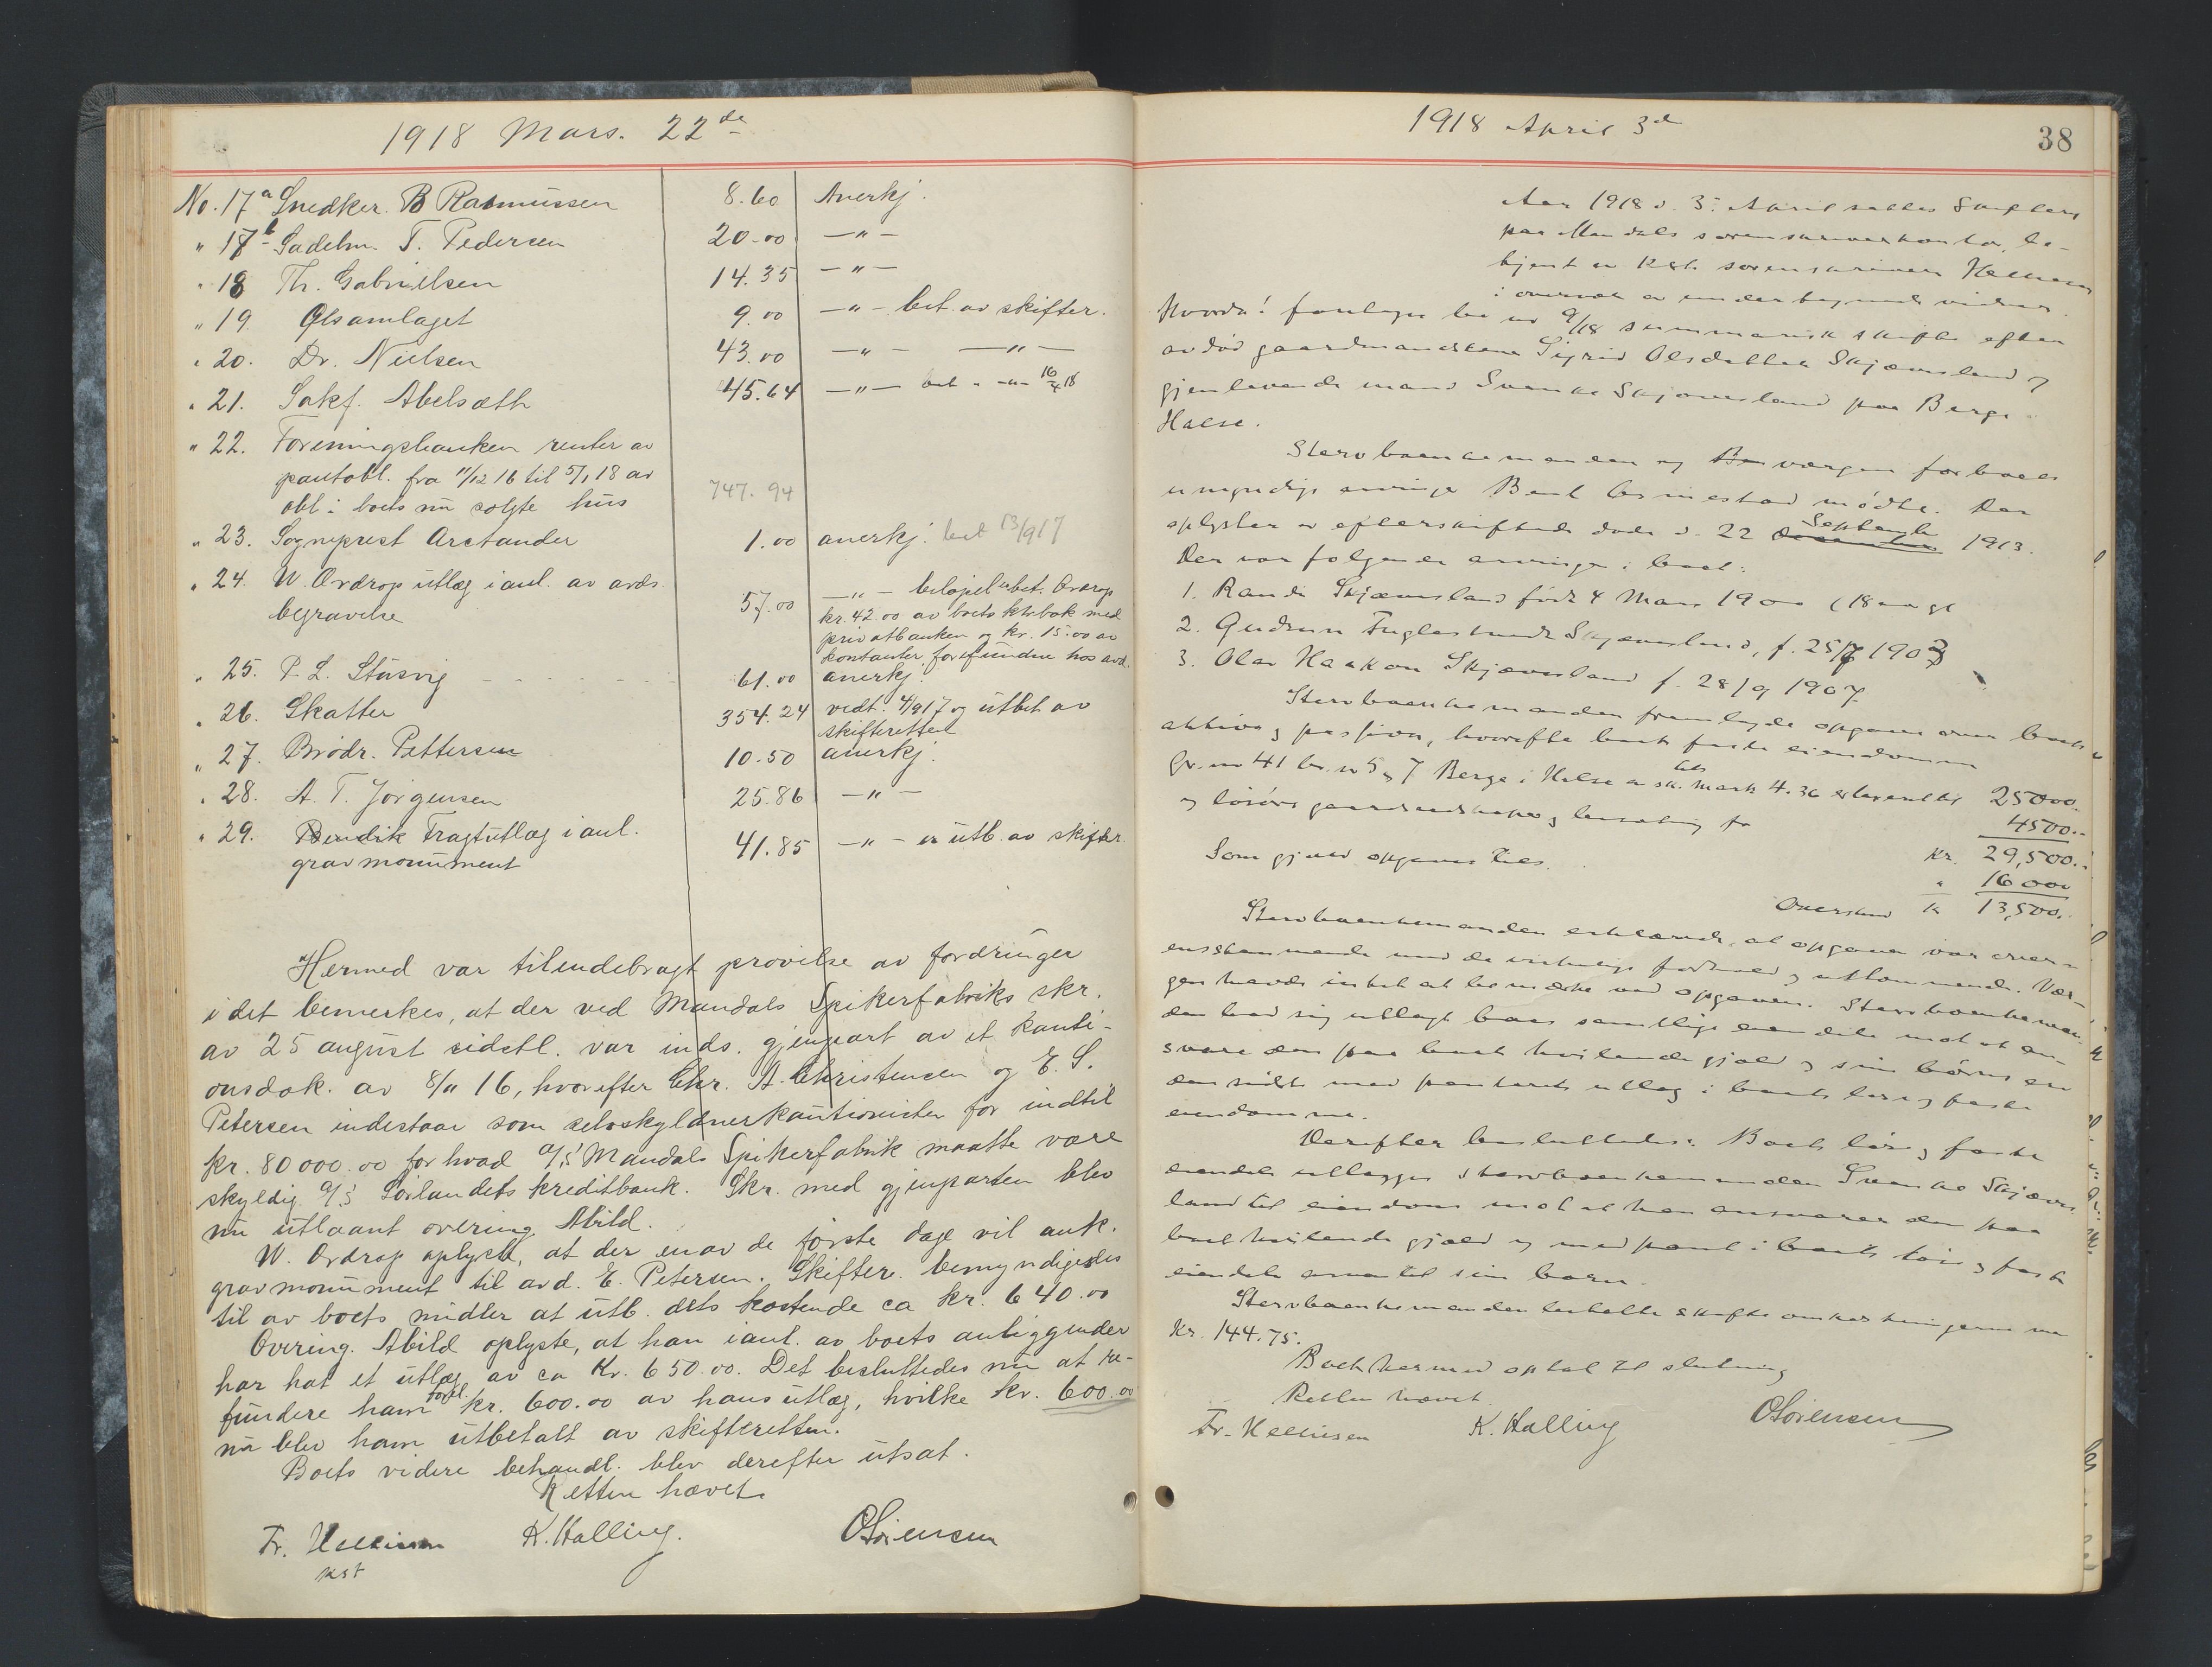 1918 Mars. 22de
No. 17a Snedker. B Rasmussen 8.60 Anerkj.
" 17b Sadelm. T. Pedersen 20.00 —"—
" 18 Th. Gabrielsen 14.35 —"—
" 19. Ølsamlaget 9.00 —"— bet. av skifter.
" 20. Dr. Nielsen 43.00 —"— —"—
" 21. Sakf. Abelsæth 45.64 —"— bet " —"— 16/4 18
" 22. Foreningsbanken renter av
pantobl. fra 11/12 16 til 5/1 18 av
obl i boets nu solgte hus 747.94
" 23. Sogneprest Arctander 1.00 anerkj. bet 13/9 17
" 24. W. Ordrop utlæg i anl. av avds. —"— beløpet utbet. Ordrop
begravelse 57.00 kr. 42.00 av boets ktrbok med
privatbanken og kr. 15.00 av
kontanter forefundne hos avd.
" 25. P. L. Stusvig 61.00 anerkj.
" 26. Skatter 354.24 vedt. 4/9 17 og utbet av
skifteretten
" 27. Brødr. Pettersen 10.50 anerkj.
" 28. A. T. Jørgensen 25.86 —"—
" 29. Bendik Fragtutlæg i anl. 41.85 —"— er utb. av skifter.
gravmonument
Hermed var tilendebragt prøvelse av fordringer
i det bemerkes, at der ved Mandals Spikerfabriks skr.
av 25 august sidstl. var inds. gjenpart av et kauti-
onsdok. av 8/11 16, hvorefter Chr. A. Christensen og E. S.
Petersen indestaar som selvskyldnerkautionister for indtil
kr. 80 000.00 for hvad A/S Mandals Spikerfabrik maatte være
skyldig A/S Sørlandets kreditbank. Skr. med gjenparten blev
nu utlaant overing. Abild.
W. Ordrop oplyste, at der en av de første dage vil ank.
gravmonument til avd. E. Petersen. Skifter. bemyndigedes
til av boets midler at utb. dets kostende ca kr. 640.00
Overing. Abild oplyste, at han i anl. av boets anliggender
har hat et utlæg av ca Kr. 650.00. Det besluttedes nu at re-
fundere ham forel. kr. 600.00 av hans utlæg, hvilke kr. 600.00
nu blev ham utbetalt av skifteretten.
Boets videre behandl. blev derefter utsat.
Retten hævet.
Fr. Hellesen K. Halling. O Sørensen
kst
1918 April 3d
38
Aar 1918 d. 3. April sattes Skifteret
paa Mandals sorenskriverkontor, be-
tjent av kst. sorenskriver Hellesen
i overvær av undertegnede vidner.
Hvorda! foretages bo nr 9/18 summarisk skifte efter
avdød gaardmandskone Sigrid Olsdatter Skjævesland og
gjenlevende mand Svenke Skjævesland paa Berge i
Halse.
Stervboenkemanden og værgen for boets
umyndige arvinger Bent mødte. Der
oplystes at efterskiftede døde d. 22 September 1913.
Der var følgende arvinger i boet:
1. Randi Skjævesland født 4 Mars 1900 (18 aar gl
2. Gudrun Fuglestvedt Skjævesland, f. 25/7 1903
3. Olav Haakon Skjævesland f. 28/9 1907
Stervboenkemanden fremlagde opgave over boets
aktiva og passiva, hvorefter boets faste eiendomme
Gr. nr 41 br. nr 5 og 7 Berge i Halse av sk. mark 4.36 er taxeret til 25000.
og løsøre gaardsredskaper og besætning for 4500.-
Kr. 29,500.-
Som gjæld opgaves tils. " 16000
Overskud kr 13,500.
Stervboenkemanden erklærede, at opgaven var overens-
ensstemmende med de virkelige forhold og uttømmende. Vær-
gen havde intet at bemerke ved opgaven. Stervboenkeman-
den bad sig utlagt boets samtlige eiendele mot at an-
svare den paa boet hvilende gjæld og sine børns arv
den sidste med panteret utlæg i boets løse og faste
eiendomme.
Derefter besluttedes: Boets løse og faste
eiendele utlægges stervboenkemanden Svenke Skjæves-
land til eiendom mot at han ansvarer den paa
boet hvilende gjæld og med pant i boets løse og faste
eiendele arven til sine børn.
Stervboenkemanden betalte skifteomkostningerne med
Kr. 144.75.
Boet hermed optat til slutning
Retten hævet.
Fr. Hellesen K. Halling O Sørensen